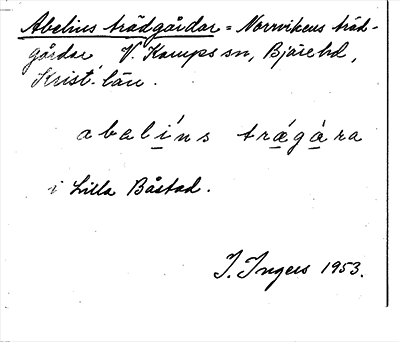 Abelius trädgårdar = Norrvikens träd-
gårdar, V. Karups sn, Bjäre hd,
Krist. län.
abelíns trǽgára
i Lilla Båstad.
I. Ingers 1953.